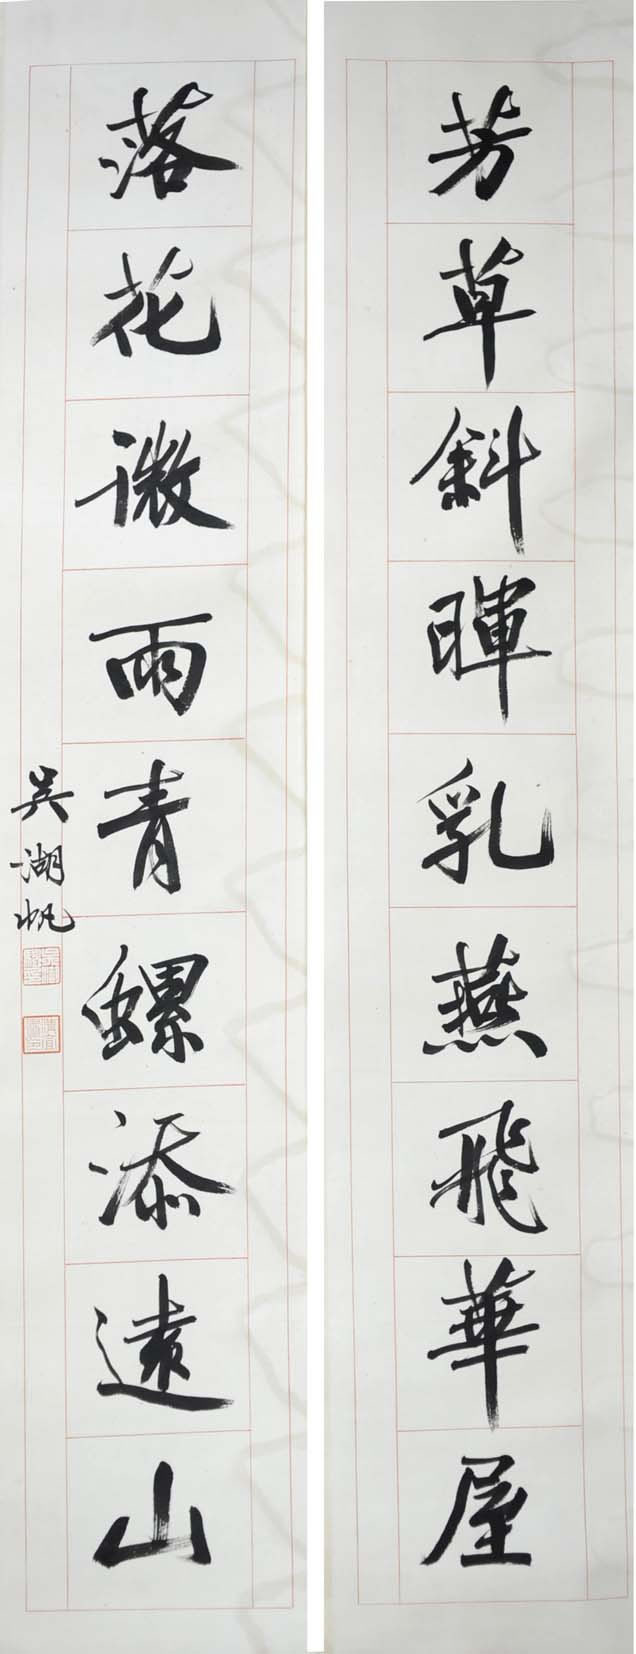 芳草斜暉乳燕飛華屋
落花微雨青螺添遠山
吳湖帆